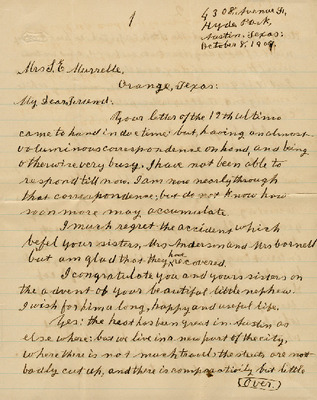 1
4308. Avenue F,
Hyde Park,
Austin, Texas:
October 8, 1909.
Mrs J. E. Murrelle,
Orange, Texas:
My Dear Friend:
Your letter of the 19th ultimo
came to hand in due time but, having an almost
voluminous correspondence on hand, and being
otherwise very busy, I have not been able to
respond till now. I am now nearly through
that correspondence; but do not know how
soon more may accumulate.
I much regret the accident which
befel your sisters, Mrs Anderson and Mrs Cornell
but am glad that they have recovered.
I congratulate you and your sisters on
the advent of your beautiful little nephew.
I wish for him a long, happy and useful life.
Yes: the heat has been great in Austin as
elsewhere: but we live in a new part of the city,
where there is not much travel, the streets are not
badly cut up, and there is comparatively but little
(Over.)